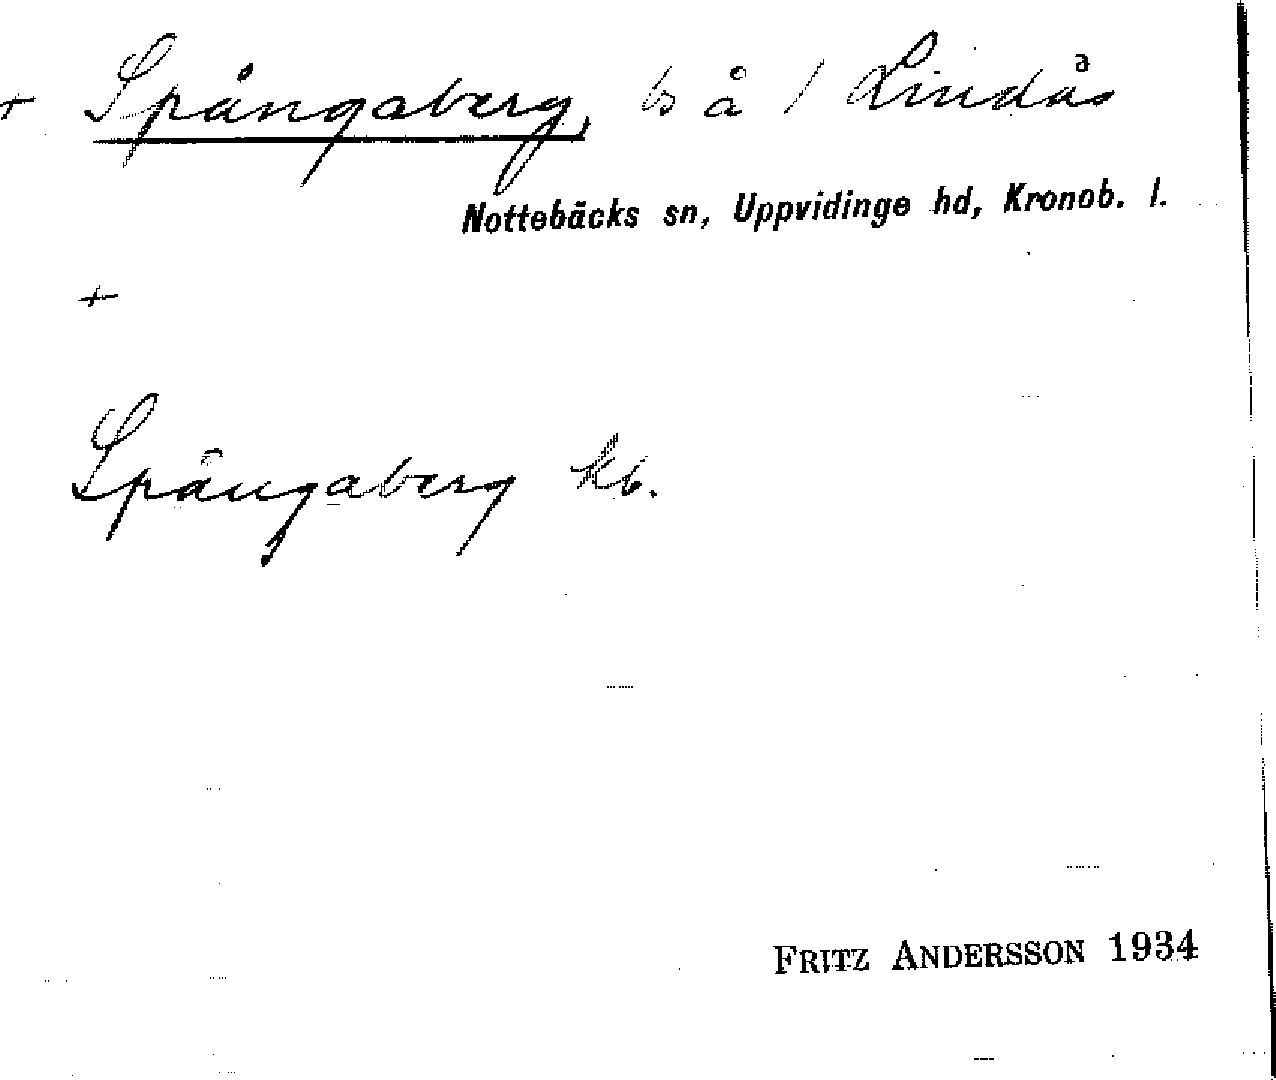 + Spångaberg, bs å 1 Lindås
Nottebäcks sn, Uppvidinge hd, Kronob. l.
+
Spångaberg kb.
FRITZ ANDERSSON 1934